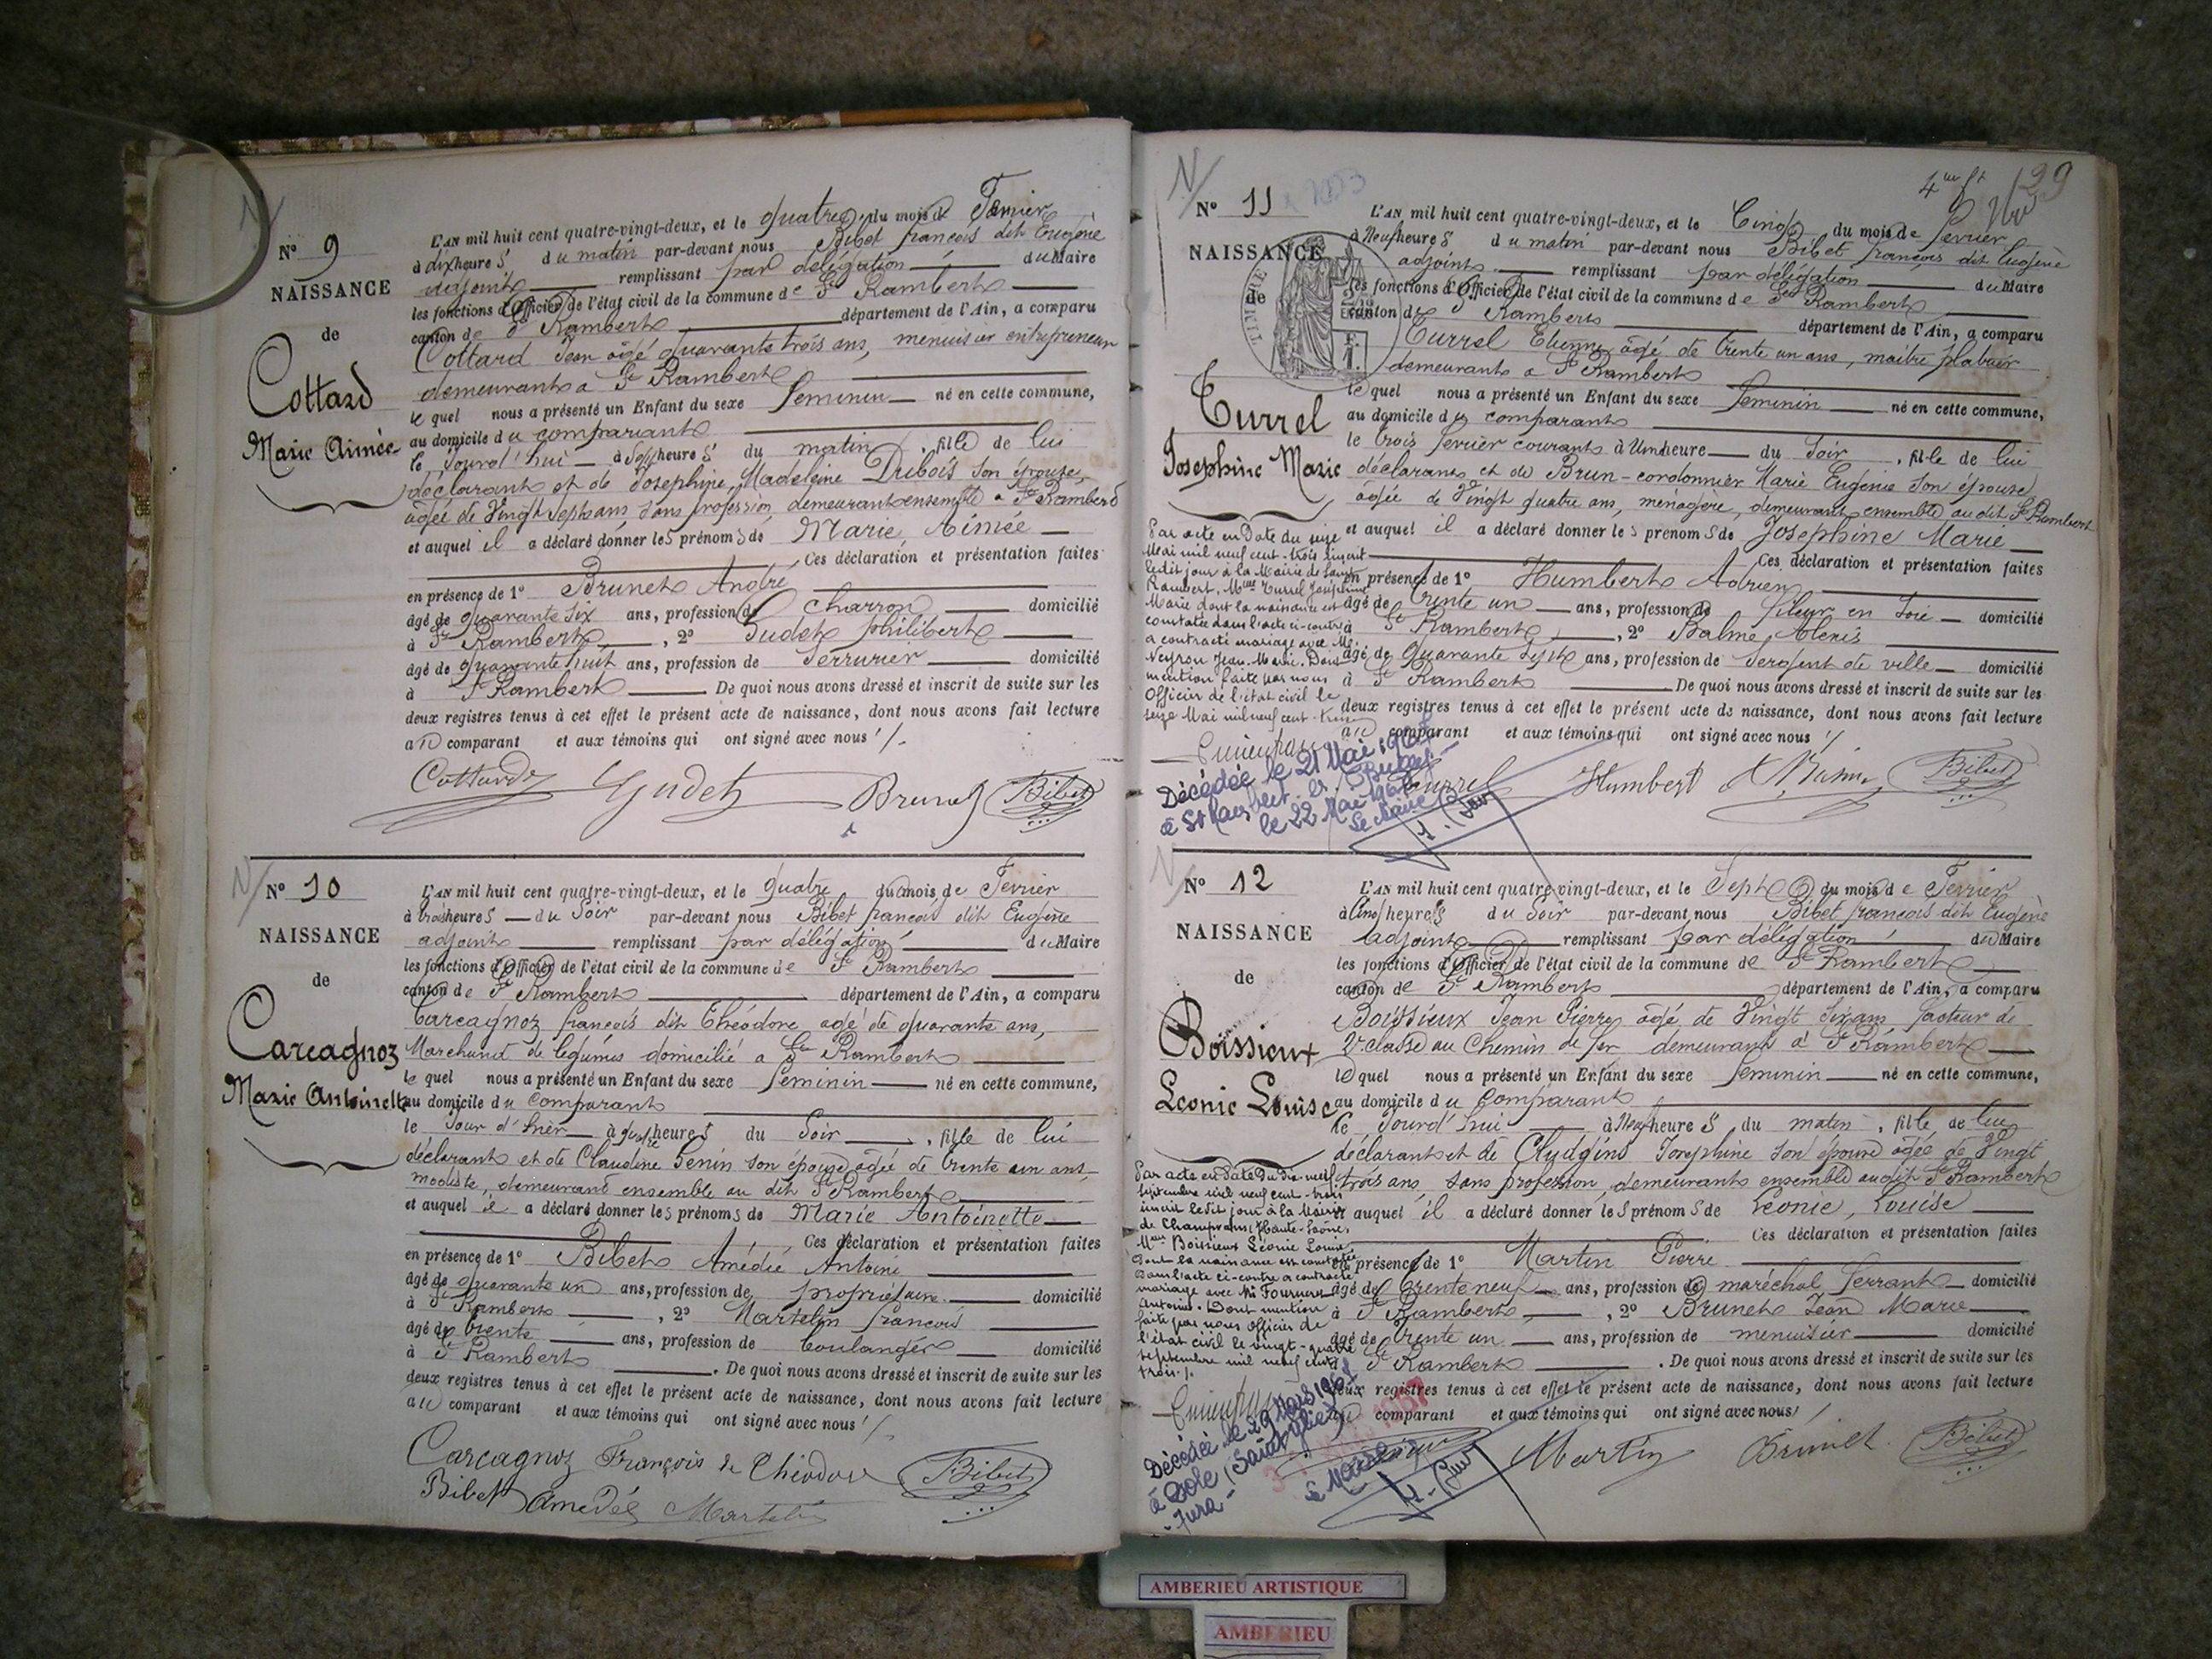 N° 9
NAISSANCE
de
Cottard
Marie Aimée
L'AN mil huit cent quatre-vingt-deux, et le quatre du mois de Fevrier
à dix heures du matin par-devant nous Bibet françois dit Eugène
adjoint remplissant par délégation du Maire
les fonctions d'Officier de l'état civil de la commune de St Rambert
canton de St Rambert département de l'Ain, a comparu
Cottard Jean âgé quarante trois ans, menuisier entrepreneur
demeurant à St Rambert
le quel nous a présenté un Enfant du sexe feminin né en cette commune,
au domicile du comparant
le Jourd'hui à Sept heures du matin, fille de lui
déclarant et de Josephine Madeleine Dubois son épouse,
âgée de Vingt Sept ans sans profession demeurant ensemble a St Rambert
et auquel il a déclaré donner les prénoms de Marie Aimée
Ces déclaration et présentation faites
en présence de 1° Brunet André
âgé de quarante six ans, profession de Charron domicilié
à St Rambert, 2° Gudet philibert
âgé de quarante huit ans, profession de Serrurier domicilié
à St Rambert De quoi nous avons dressé et inscrit de suite sur les
deux registres tenus à cet effet le présent acte de naissance, dont nous avons fait lecture
au comparant et aux témoins qui ont signé avec nous
Cottard Gudet Brunet Bibet
N° 10
NAISSANCE
de
Carcagnoz
Marie Antoinette
L'AN mil huit cent quatre-vingt-deux, et le quatre du mois de Fevrier
à trois heures du Soir par-devant nous Bibet françois dit Eugène
adjoint remplissant par délégation du Maire
les fonctions d'Officier de l'état civil de la commune de St Rambert
canton de St Rambert département de l'Ain, a comparu
Carcagnoz françois dit Théodore agé de quarante ans,
Marchand de legumes domicilié a St Rambert
le quel nous a présenté un Enfant du sexe feminin né en cette commune,
au domicile du Comparant
le Jour d'hier à heures du Soir, fille de lui
déclarant et de Claudine Genin son épouse âgée de trente un ans,
modiste, demeurant ensemble au dit St Rambert
et auquel il a déclaré donner les prénoms de Marie Antoinette
Ces déclaration et présentation faites
en présence de 1° Bibet Amédée Antoine
âgé de quarante un ans, profession de propriétaire domicilié
à St Rambert, 2° Martelin françois
âgé de trente ans, profession de boulanger domicilié
à St Rambert. De quoi nous avons dressé et inscrit de suite sur les
deux registres tenus à cet effet le présent acte de naissance, dont nous avons fait lecture
au comparant et aux témoins qui ont signé avec nous
Carcagnoz François dit Théodore Bibet
Bibet Amedée Martelin
4me ft 29
N° 11
NAISSANCE
de
TIMBRE
Turrel
Josephine Marie
L'AN mil huit cent quatre-vingt-deux, et le Cinq du mois de fevrier
à Neuf heures du matin par-devant nous Bibet françois dit Eugène
adjoint remplissant par délégation du Maire
les fonctions d'Officier de l'état civil de la commune de St Rambert
canton de St Rambert département de l'Ain, a comparu
Turrel Etienne âgé de trente un ans, maitre platrier
demeurant a St Rambert
le quel nous a présenté un Enfant du sexe feminin né en cette commune,
au domicile du comparant
le trois fevrier courant à Une heure du Soir, fille de lui
déclarant et de Brun-cordonnier Marie Eugénie son épouse
âgée de Vingt quatre ans, menagère, demeurant ensemble au dit St Rambert
et auquel il a déclaré donner les prénoms de Josephine Marie
Ces déclaration et présentation faites
en présence de 1° Humbert Adrien
âgé de trente un ans, profession de fileur en soie domicilié
à St Rambert, 2° Balme Alexis
âgé de quarante Sept ans, profession de Sergent de ville domicilié
à St Rambert De quoi nous avons dressé et inscrit de suite sur les
deux registres tenus à cet effet le présent acte de naissance, dont nous avons fait lecture
au comparant et aux témoins qui ont signé avec nous
Turrel Humbert Bibet
Par acte en date du seize
Mai mil neuf cent-trois inscrit
ledit jour à la Mairie de Saint
Rambert, Melle Turrel Joséphine
Marie dont la naissance est
constatée dans l'acte ci-contre
a contracté mariage avec Mr
Neyron Jean-Marie. Dont
mention faite par nous
Officier de l'état civil le
seize Mai mil neuf cent-trois
Décédée le 21 Mai
à St Rambert en Bugey
le 22 Mai
Le Maire
N° 12
NAISSANCE
de
Boissieux
Leonie Louise
L'AN mil huit cent quatre-vingt-deux, et le Sept du mois de Fevrier
à Cinq heures du Soir par-devant nous Bibet françois dit Eugène
adjoint remplissant par délégation du Maire
les fonctions d'Officier de l'état civil de la commune de St Rambert
canton de St Rambert département de l'Ain, a comparu
Boissieux Jean Pierre âgé de Vingt Six ans facteur de
2e classe au Chemin de fer demeurant à St Rambert
le quel nous a présenté un Enfant du sexe feminin né en cette commune,
au domicile du Comparant
le Jourd'hui à Neuf heures du matin, fille de lui
déclarant et de Josephine son épouse âgée de Vingt
trois ans, sans profession, demeurant ensemble audit St Rambert
et auquel il a déclaré donner les prénoms de Leonie, Louise
Ces déclaration et présentation faites
en présence de 1° Martin Pierre
âgé de trente neuf ans, profession de maréchal ferrant domicilié
à St Rambert, 2° Brunet Jean Marie
âgé de trente un ans, profession de menuisier domicilié
à St Rambert. De quoi nous avons dressé et inscrit de suite sur les
deux registres tenus à cet effet le présent acte de naissance, dont nous avons fait lecture
au comparant et aux témoins qui ont signé avec nous
Martin Brunet Bibet
Par acte en date du dix-neuf
septembre mil neuf cent-trois
inscrit ledit jour à la Mairie
de Champvans, Haute-Saône,
Melle Boissieux Léonie Louise
dont la naissance est constatée
dans l'acte ci-contre a contracté
mariage avec Mr Fournier
Antoine. Dont mention
faite par nous Officier de
l'état civil le vingt-quatre
septembre mil neuf cent
trois
Décédée le 29 Mars
à Dole
Jura
Le Maire
AMBERIEU ARTISTIQUE
AMBERIEU